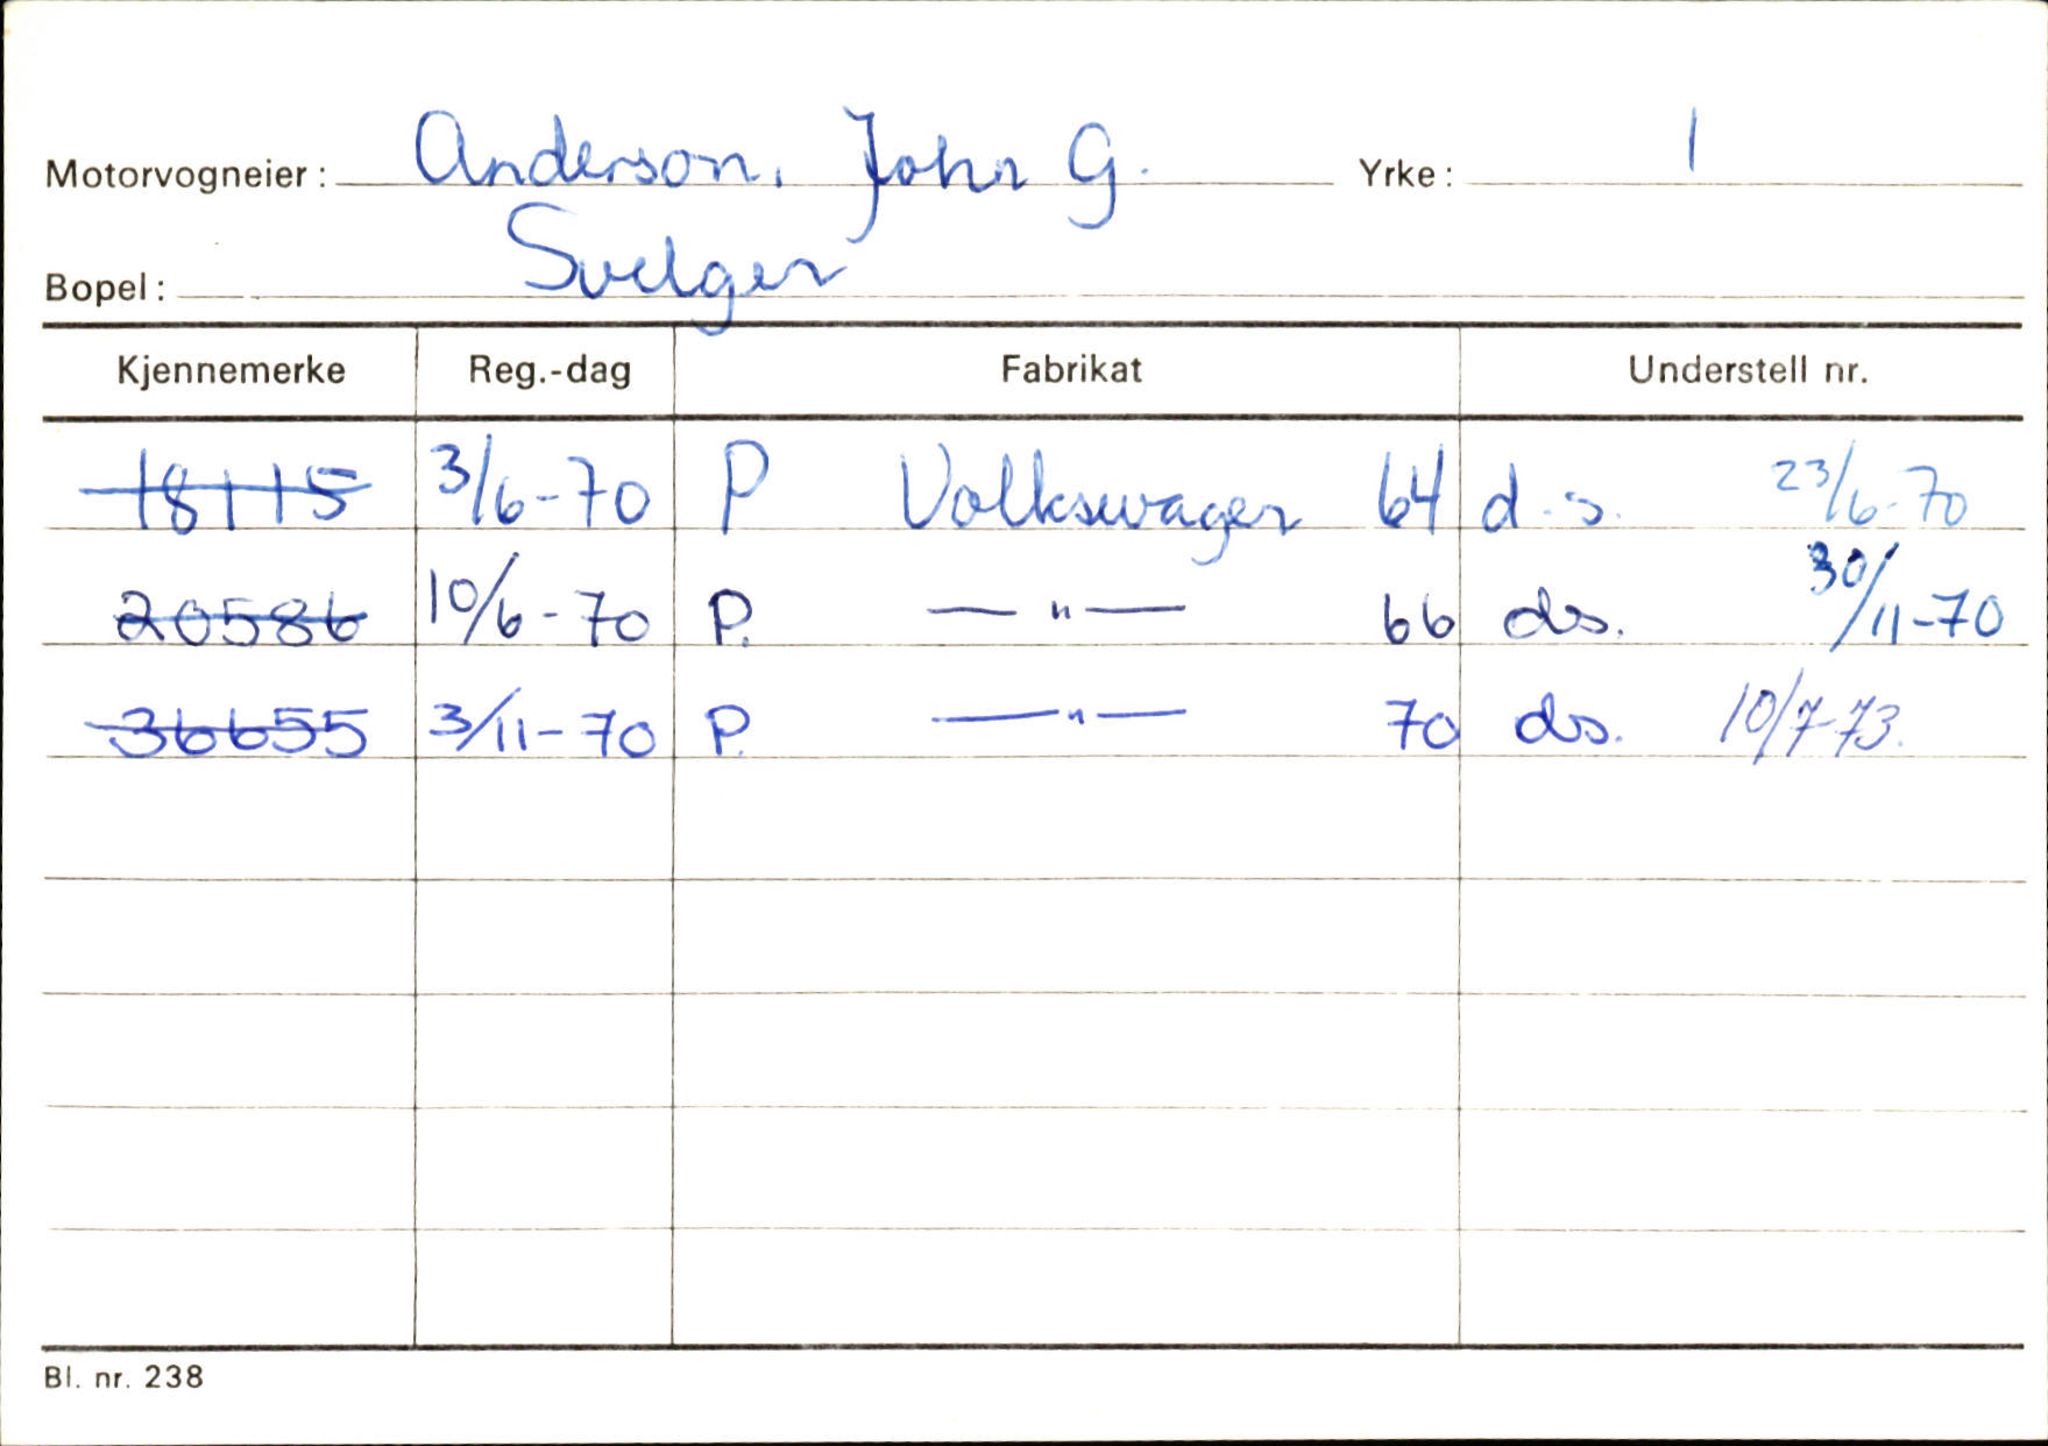 Motorvogneier: Anderson, John G. Yrke: 1
Bopel: Svelgen
Kjennemerke Reg.-dag Fabrikat Understell nr.
18115 3/6-70 P Volkswagen 64 d.s. 23/6-70
20586 10/6-70 P. —"— 66 ds. 30/11-70
36655 3/11-70 P. —"— 70 ds. 10/7-73.
Bl. nr. 238